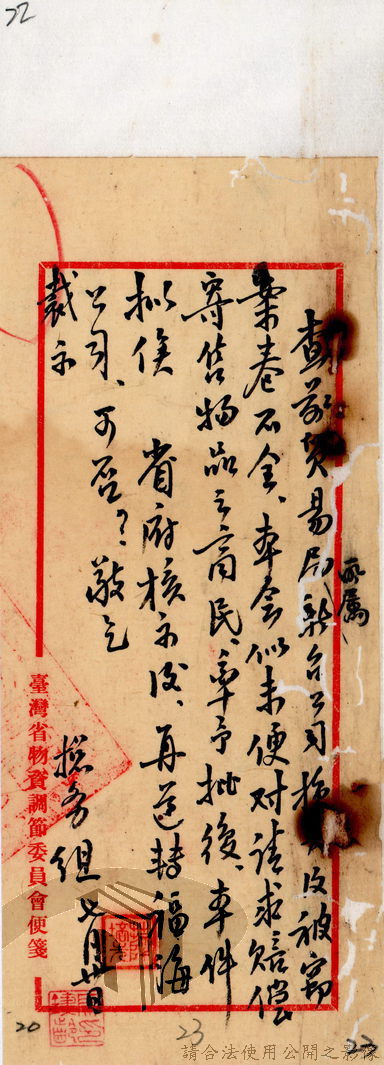 22
查前貿易局所屬新台公司 被竊
案卷不全、本會似未便对請求賠償
寄售物品之商民、率予批後、本件
拟俟 省府核示後、再送轉福海
公司、可否？敬乞
裁示
總务組 七月廿日
臺灣省物資調節委員會便箋
20
23
22
請合法使用公開之影像